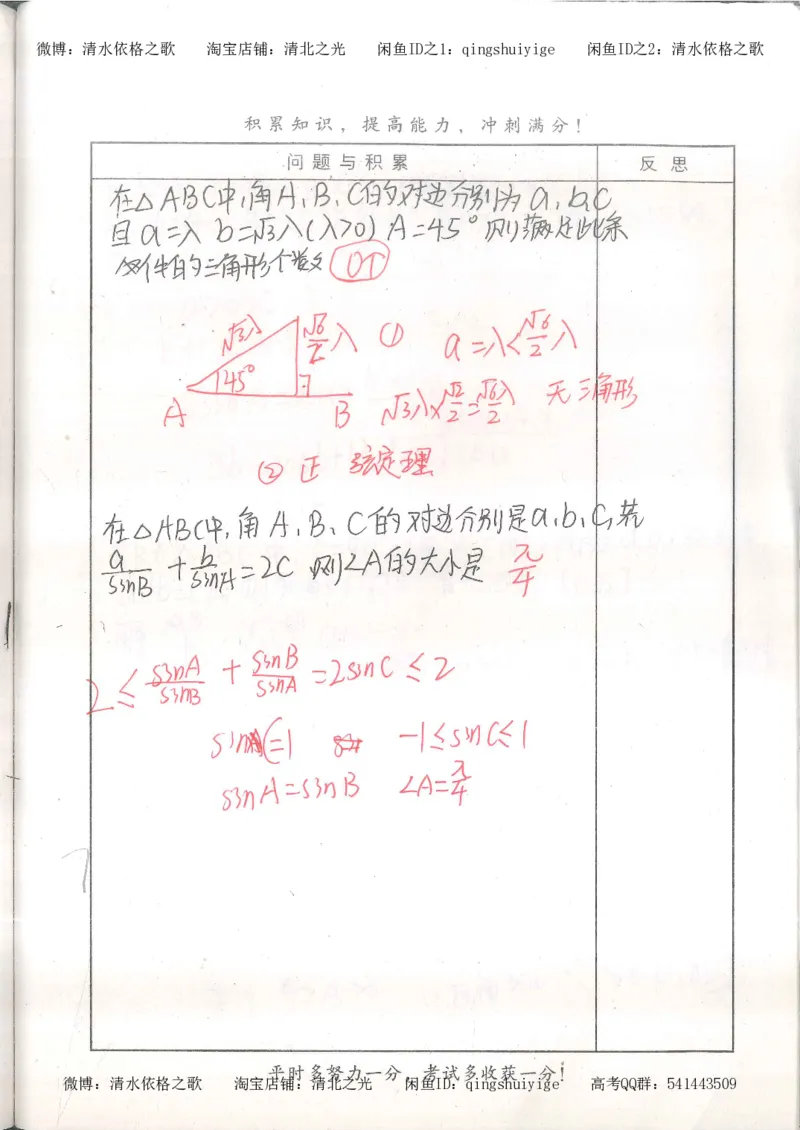 微博：清水依格之歌 淘宝店铺：清北之光 闲鱼ID之1：qingshuiyige 闲鱼ID之2：清水依格之歌
积累知识，提高能力，冲刺满分！
问题与积累 反思
在△ABC中,角A、B、C的对边分别为a,b,C
且a=λ b=√3λ(λ>0) A=45° 则满足此条
件的三角形个数 0个
√3λ √6/2 λ ① a=λ<√6/2 λ
45°
A B √3λ×√2/2=√6/2 λ 无三角形
② 正弦定理
在△ABC中,角A、B、C的对边分别是a、b、C,若
a/sinB + b/sinA =2C 则∠A的大小是 π/4
2≤ sinA/sinB + sinB/sinA =2sinC≤2
sinC=1 -1≤sinC≤1
sinA=sinB ∠A=π/4
平时多努力一分，考试多收获一分！
微博：清水依格之歌 淘宝店铺：清北之光 闲鱼ID：qingshuiyige 高考QQ群：541443509